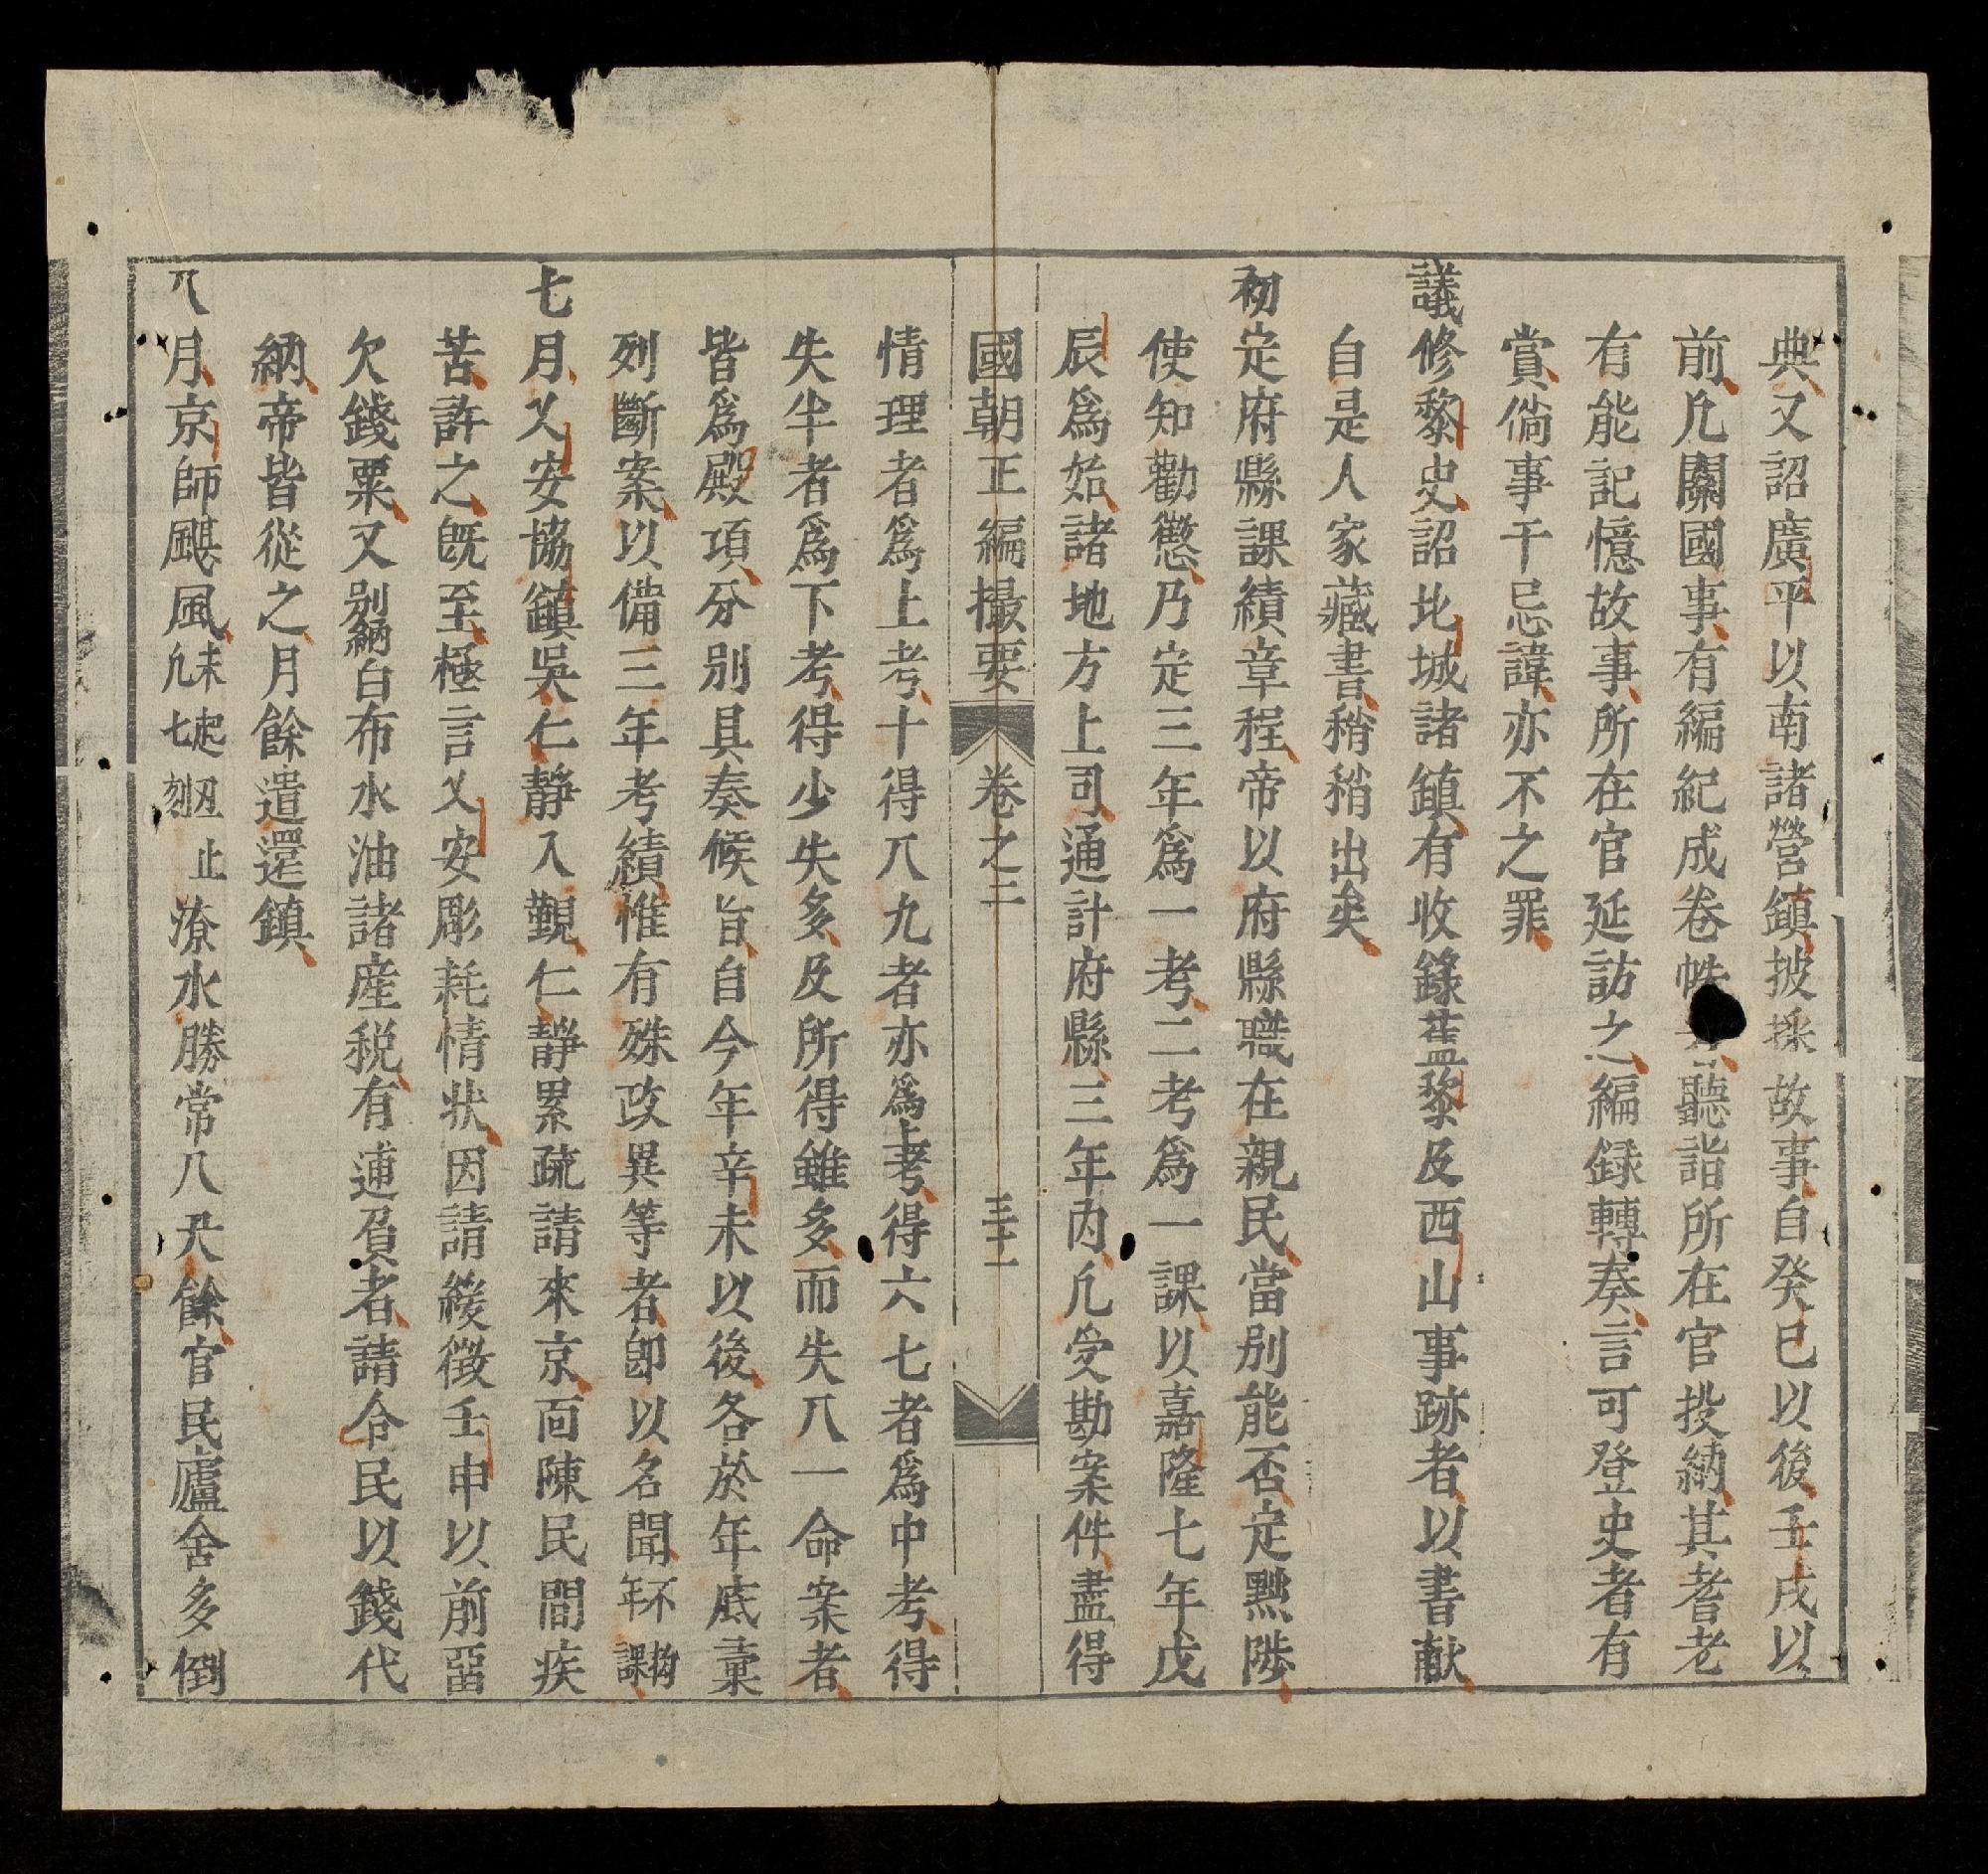 典又詔廣平以南諸營鎮披採故事自癸巳以後壬戌以
前凡關國事有編紀成卷帙聽詣所在官投納其耆老
有能記憶故事所在官延訪之編録轉奏言可登史者有
賞倘事干忌諱亦不之罪
議修黎史詔北城諸鎮有收錄舊黎及西山事跡者以書献
自是人家藏書稍稍出矣
初定府縣課績章程帝以府縣職在親民當别能否定黜陟
使知勸懲乃定三年爲一考二考爲一課以嘉隆七年戊
辰爲始諸地方上司通計府縣三年内凡受勘案件盡得
國朝正編撮要 卷之二 三十一
情理者爲上考十得八九者亦爲上考得六七者爲中考得
失半者爲下考得少失多及所得雖多而失八一命案者
皆爲殿項分别具奏候旨自今年辛未以後各於年底彙
列斷案以備三年考績惟有殊政異等者卽以名聞不拘年課
七月乂安協鎮吳仁靜入覲仁靜累疏請來京面陳民間疾
苦許之旣至極言乂安彫耗情狀因請緩徵壬申以前畱
欠錢粟又别納白布水油諸産稅有逋負者請令民以錢代
納帝皆從之月餘遣還鎮
八月京師颶風未起丑止凡七刻潦水勝常八尺餘官民廬舍多倒